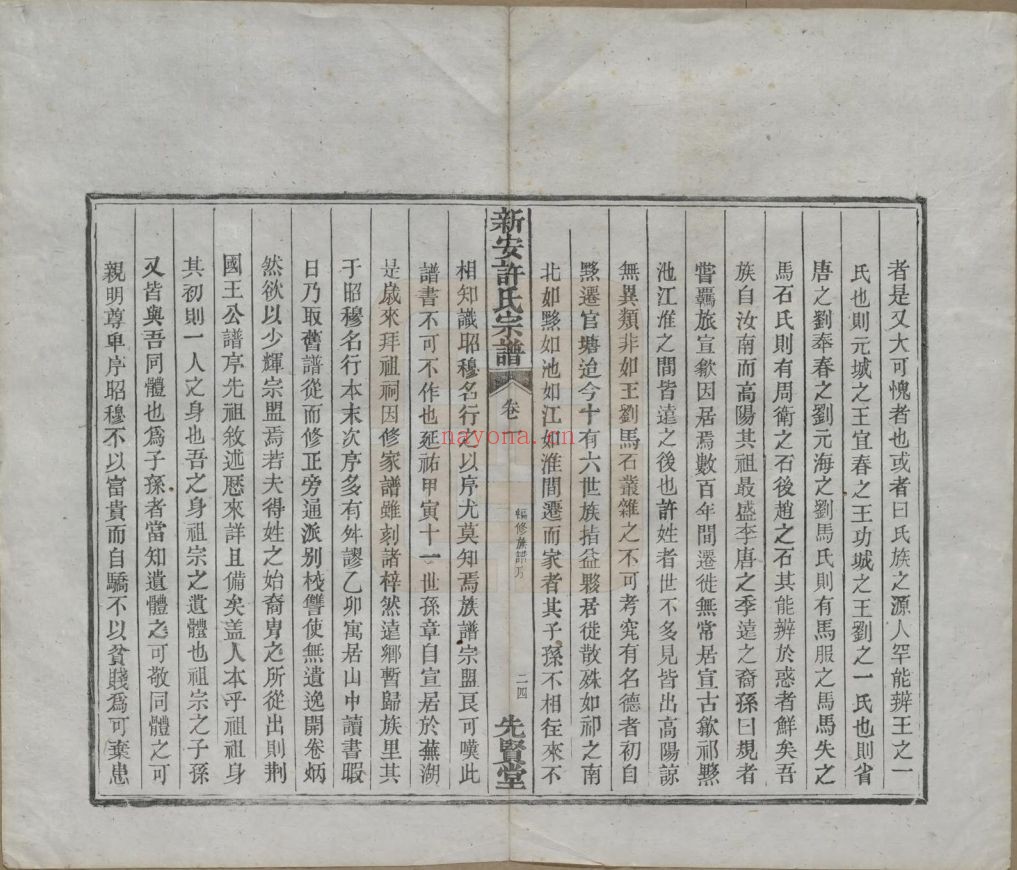 者是又大可愧者也或者曰氏族之源人罕能辨王之一
氏也則元城之王宜春之王功城之王劉之一氏也則省
唐之劉奉春之劉元海之劉馬氏則有馬服之馬馬失之
馬石氏則有周衛之石後趙之石其能辨於惑者鮮矣吾
族自汝南而高陽其祖最盛李唐之季遠之裔孫曰規者
嘗羈旅宣歙因居焉數百年間遷徙無常居宣古歙祁黟
池江淮之間皆遠之後也許姓者世不多見皆出高陽諒
無異類非如王劉馬石叢雜之不可考究有名德者初自
黟遷官塘迨今十有六世族指益夥居徙散殊如祁之南
北如黟如池如江如淮間遷而家者其子孫不相徃來不
新安許氏宗譜
卷一
修族譜
二四
先賢堂
相知識昭穆名行之以序尤莫知焉族譜宗盟良可嘆此
譜書不可不作也延祐甲寅十一世孫章自宣居於蕪湖
是歳來拜祖祠因修家譜雖刻諸梓然遠鄉暫歸族里其
于昭穆名行本末次序多有舛謬乙卯寓居山中讀書暇
日乃取舊譜從而修正旁通派别校讐使無遺逸開卷炳
然欲以少輝宗盟焉若夫得姓之始裔胄之所從出則荆
國王公譜序先祖敘述厯來詳且備矣盖人本乎祖祖身
其初則一人之身也吾之身祖宗之遺體也祖宗之子孫
又皆與吾同體也爲子孫者當知遺體之可敬同體之可
親明尊卑序昭穆不以富貴而自驕不以貧賤爲可棄患
nayona.cn